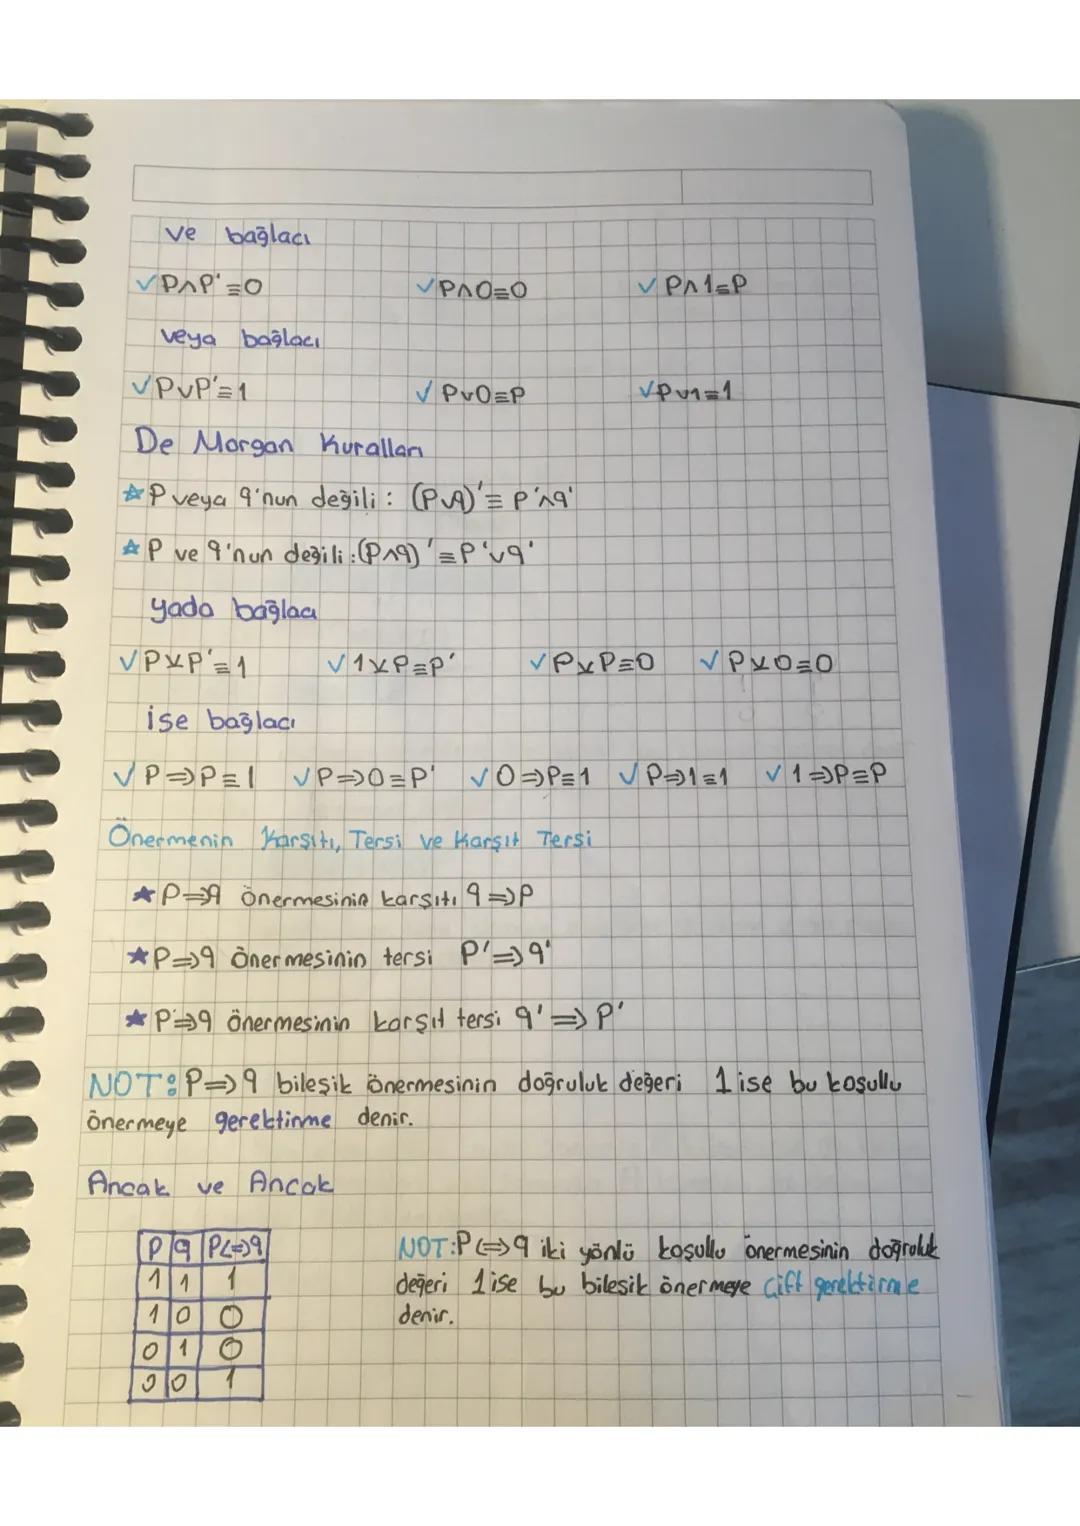 ve bağlacı
✓P∧P'≡0 ✓P∧0≡0 ✓P∧1≡P
veya bağlacı
✓P∨P'≡1 ✓P∨0≡P ✓P∨1≡1
De Morgan Kuralları
☆P veya q'nun değili: (P∨q)'≡ p'∧q'
☆P ve q'nun değili:(P∧q)'≡P'∨q'
yada bağlacı
✓P⊻P'≡1 ✓1⊻P≡P' ✓P⊻P≡0 ✓P⊻0≡0
ise bağlacı
✓P⇒P≡1 ✓P⇒0≡P' ✓0⇒P≡1 ✓P⇒1≡1 ✓1⇒P≡P
Önermenin Karşıtı, Tersi ve Karşıt Tersi
★P⇒q önermesinin karşıtı q⇒P
★P⇒q önermesinin tersi P'⇒q'
★P⇒q önermesinin karşıt tersi q'⇒P'
NOT:P⇒q bileşik önermesinin doğruluk değeri 1 ise bu koşullu
önermeye gerektirme denir.
Ancak ve Ancak
P q P⇔q
1 1 1
1 0 0
0 1 0
0 0 1
NOT:P⇔q iki yönlü koşullu önermesinin doğruluk
değeri 1 ise bu bileşik önermeye çift gerektirme
denir.